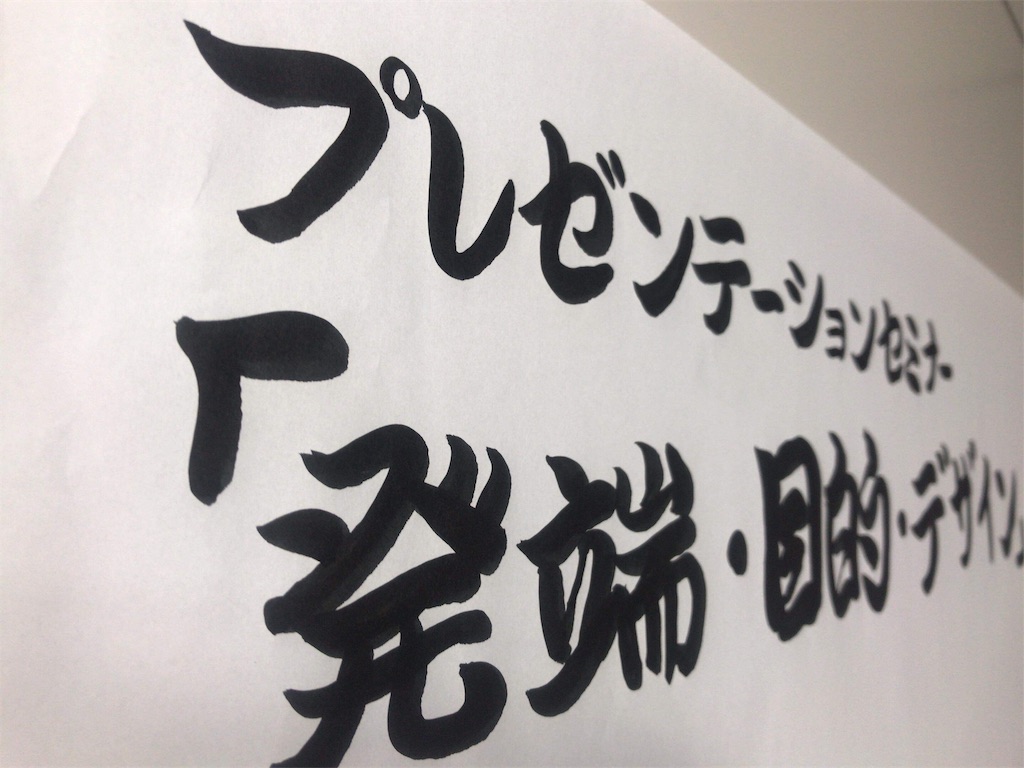 プレゼンテーションセミナー
「発端・目的・デザイン」